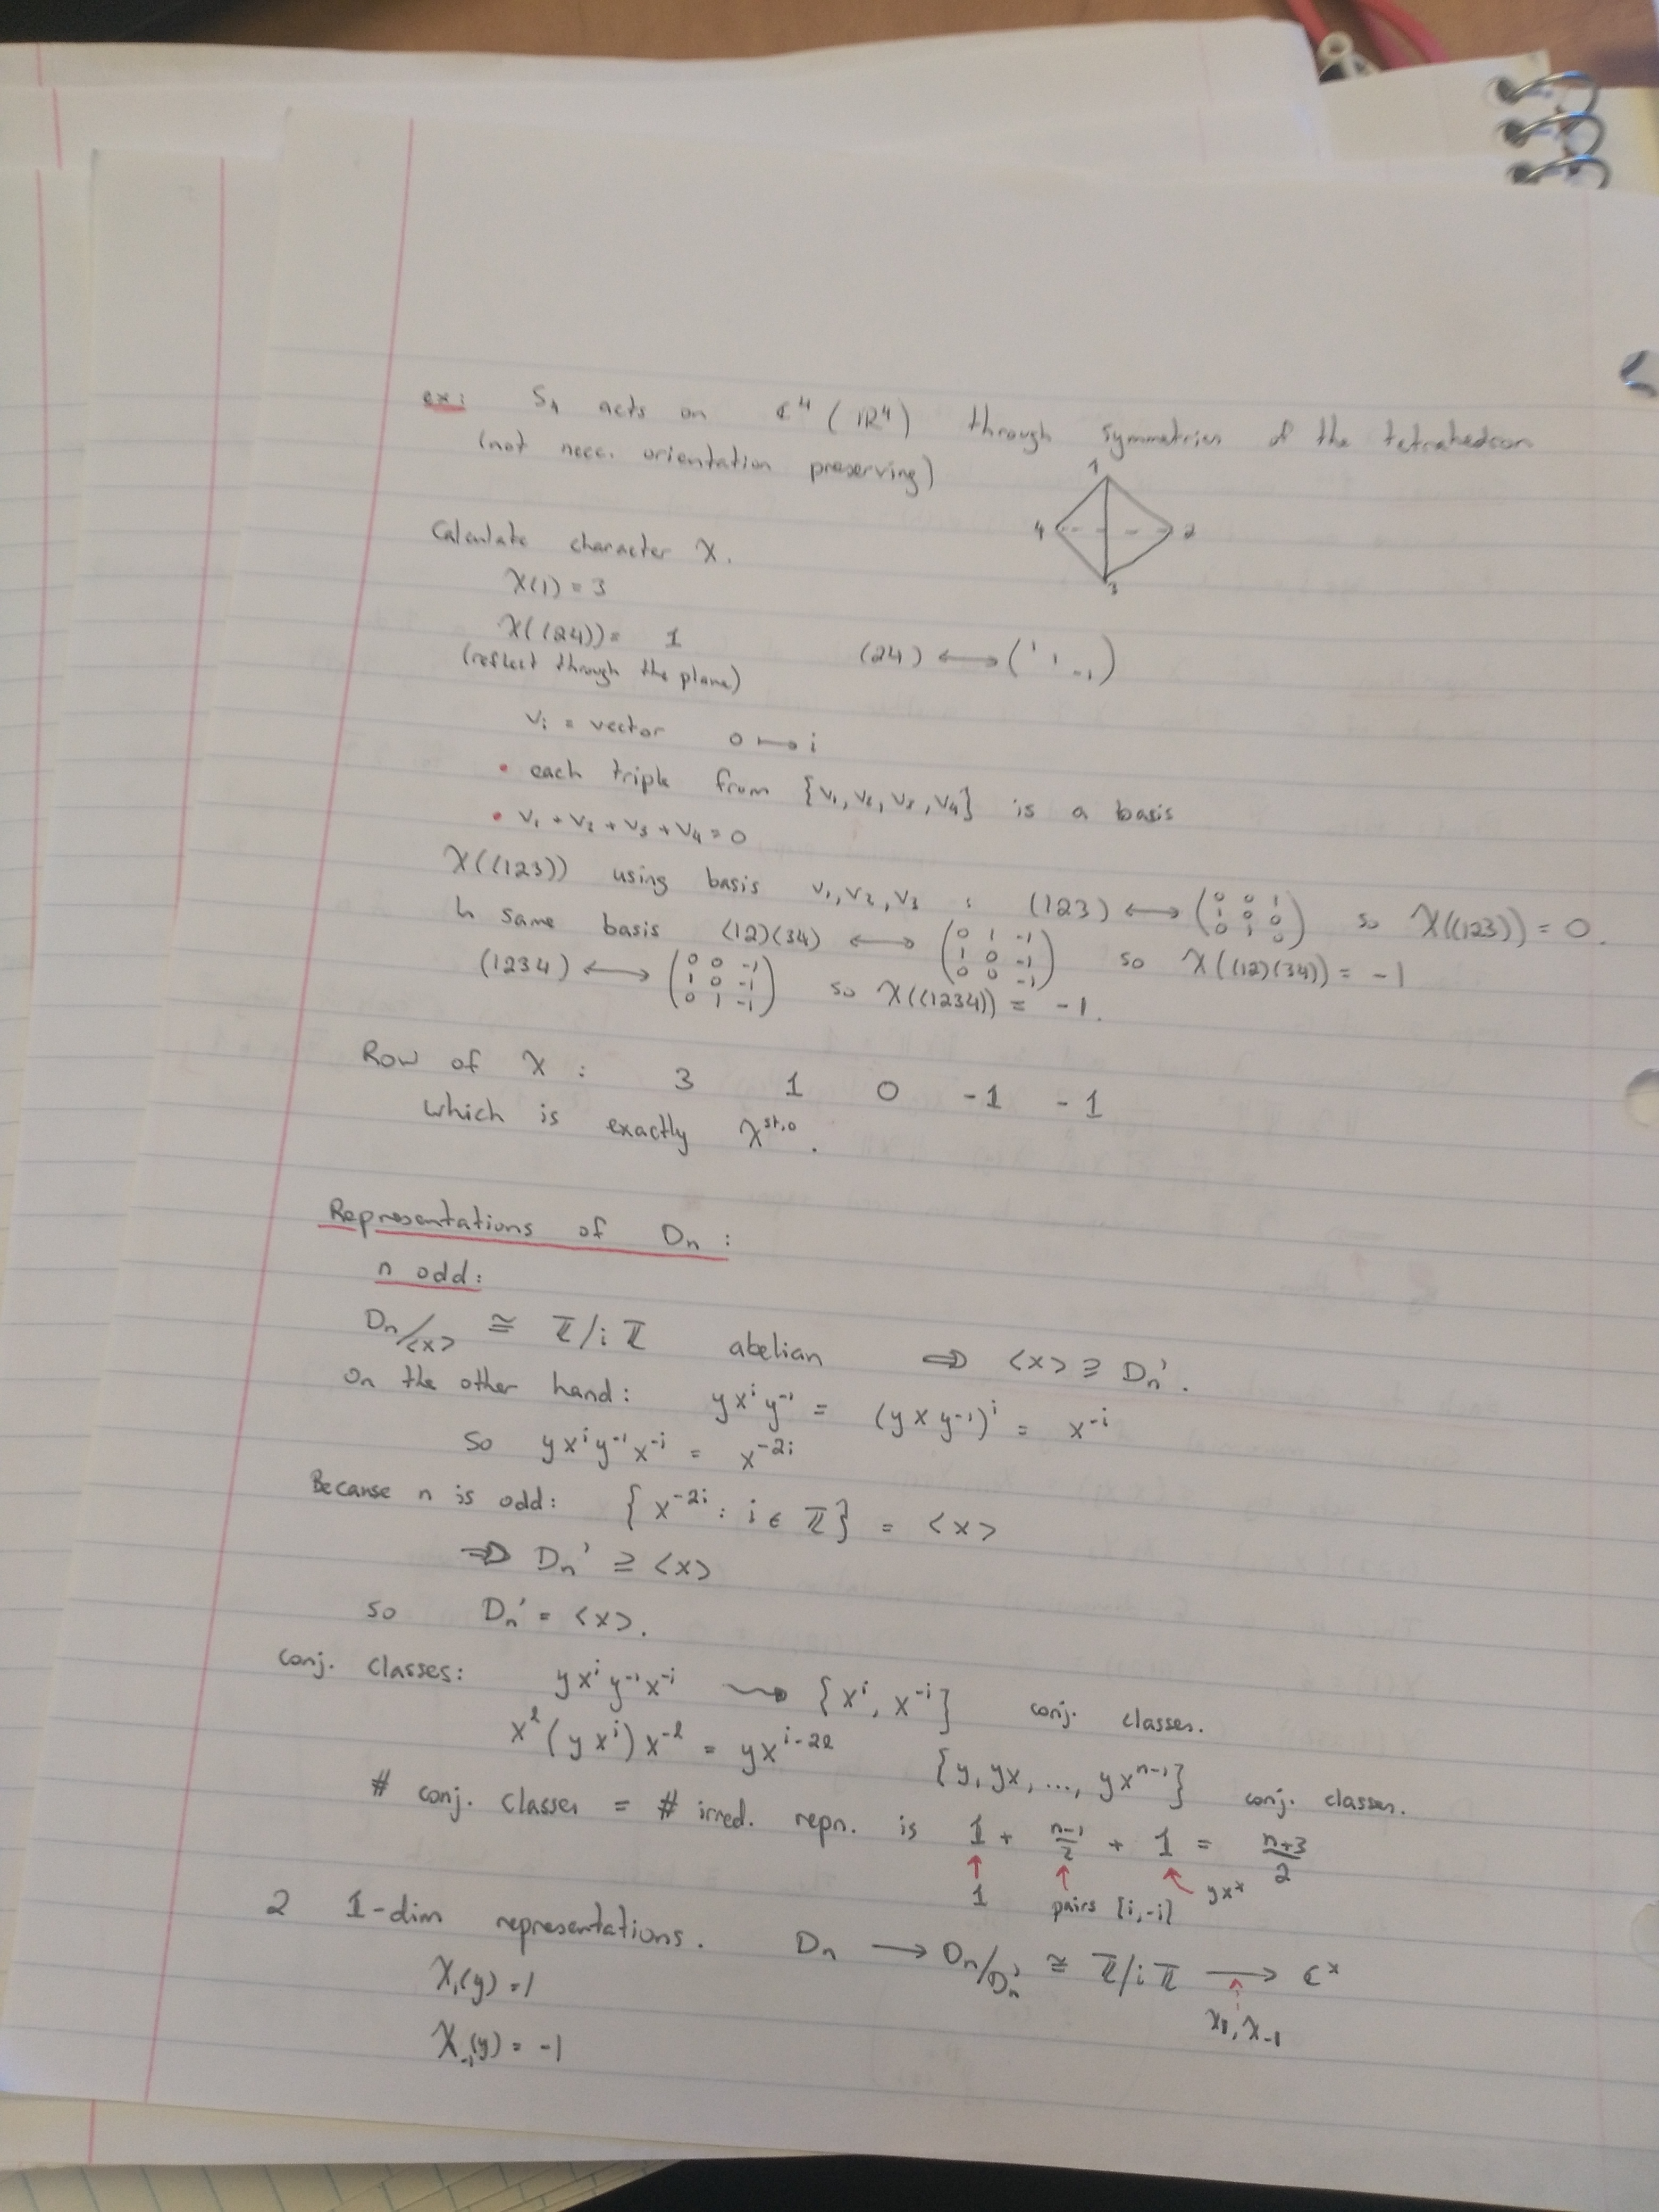 ex: S4 acts on ℂ⁴ (ℝ⁴) through symmetries of the tetrahedron
(not nece. orientation preserving)
1
4 2
3
Calculate character χ.
χ(1) = 3
χ((24)) = 1 (24) ⟷ (1 1 -1)
(reflect through the plane)
vᵢ = vector 0 ↦ i
• each triple from {v₁, v₂, v₃, v₄} is a basis
• v₁ + v₂ + v₃ + v₄ = 0
χ((123)) using basis v₁, v₂, v₃ : (123) ⟷ (0 0 1 / 1 0 0 / 0 1 0) so χ((123)) = 0.
↳ same basis (12)(34) ⟷ (0 1 -1 / 1 0 -1 / 0 0 -1) so χ((12)(34)) = -1
(1234) ⟷ (0 0 -1 / 1 0 -1 / 0 1 -1) so χ((1234)) = -1.
Row of χ : 3 1 0 -1 -1
which is exactly χ^{st,0}.
Representations of Dn :
n odd:
Dn/<x> ≅ ℤ/iℤ abelian ⇒ <x> ⊇ Dn'.
On the other hand: yxⁱy⁻¹ = (yxy⁻¹)ⁱ = x⁻ⁱ
So yxⁱy⁻¹x⁻ⁱ = x⁻²ⁱ
Because n is odd: {x⁻²ⁱ : i ∈ ℤ} = <x>
⇒ Dn' ⊇ <x>
so Dn' = <x>.
conj. classes: yxⁱy⁻¹x⁻ⁱ ⇝ {xⁱ, x⁻ⁱ} conj. classes.
x^l(yxⁱ)x^{-l} = yx^{i-2l} {y, yx, ..., yxⁿ⁻¹} conj. classes.
# conj. classes = # irred. repn. is 1 + (n-1)/2 + 1 = (n+3)/2
↑ ↑ ↖ yx*
1 pairs {i,-i}
2 1-dim representations. Dn → Dn/Dn' ≅ ℤ/iℤ → ℂˣ
χ₁(y) = 1
χ₁, χ₋₁
χ₋₁(y) = -1